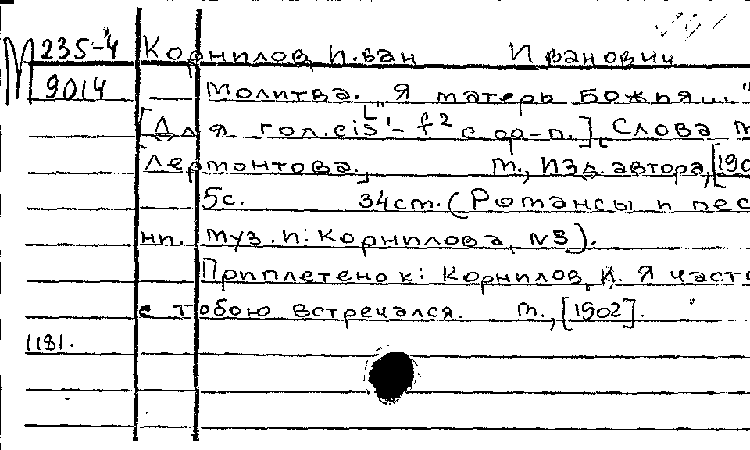 М 235-4 Корнилов, Иван Иванович
9014 Молитва. "Я матерь Божья..."
[Для гол. cis¹-f² с ф-п.] [Слова М
Лермонтова.] М., Изд. автора, [190
5с. 34см. (Романсы и пес
ни. Муз. И. Корнилова, №3).
Приплетено к: Корнилов, И. Я част
с тобою встречался. М., [1902].
1181.